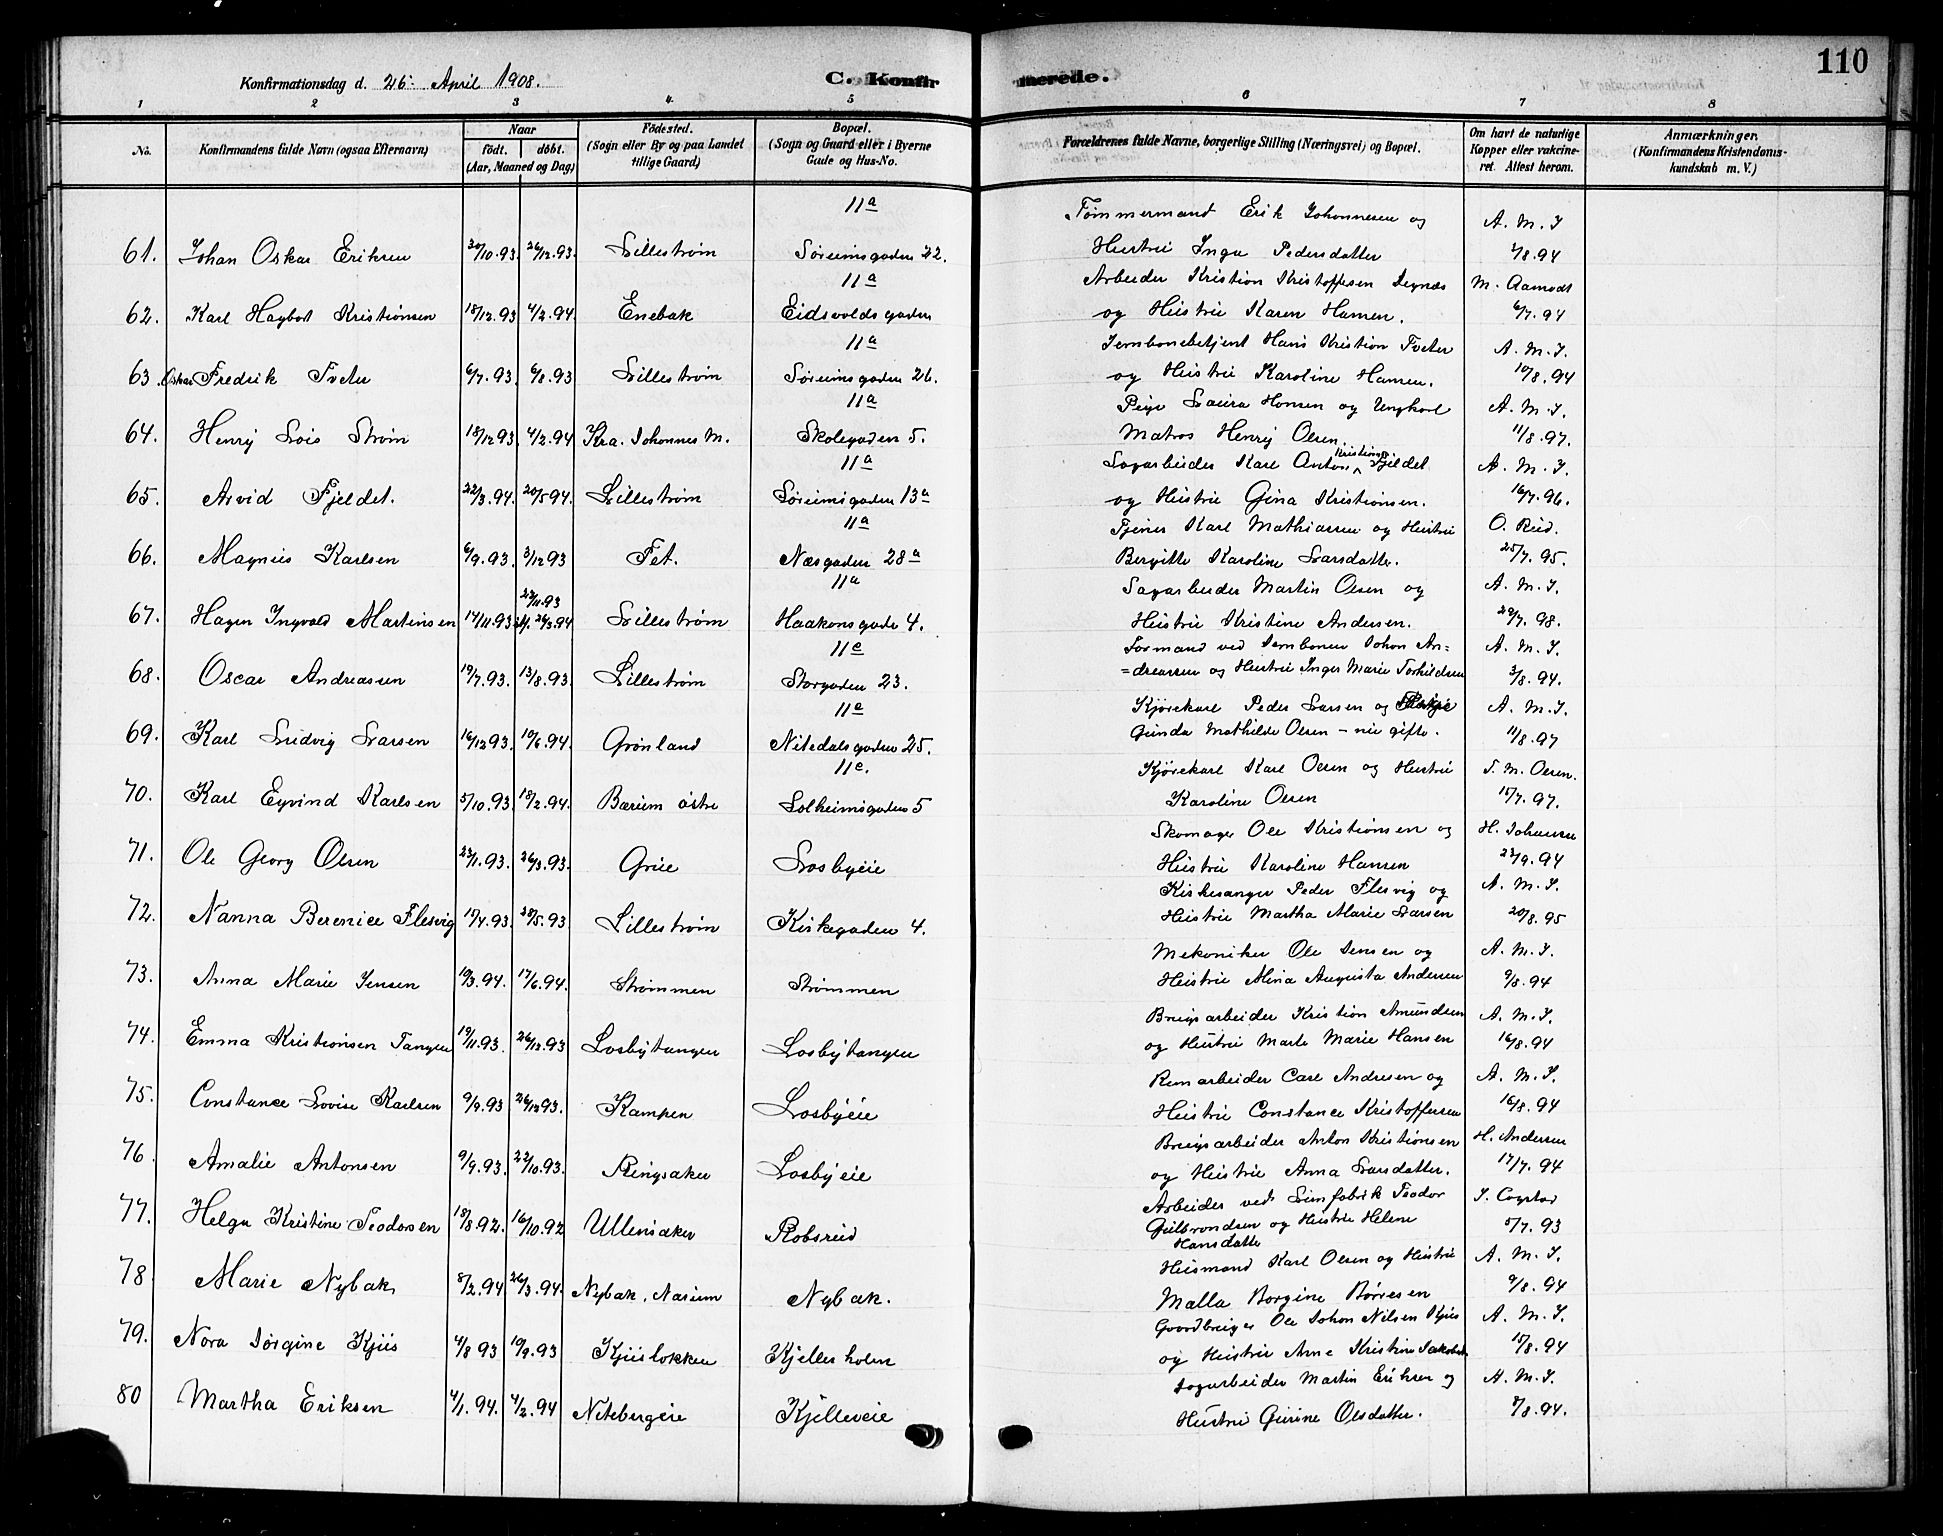 110
Konfirmationsdag d. 26: April 1908.
C. Konfirmerede.
1 2 3 4. 5 6 7 8
No. Konfirmandens fulde Navn (ogsaa Efternavn) Naar født. døbt. (Aar, Maaned og Dag) Fødested. (Sogn eller By og paa Landet tillige Gaard) Bopæl. (Sogn og Gaard eller i Byerne Gade og Hus-No. Forældrenes fulde Navne, borgerlige Stilling (Næringsvei) og Bopæl. Om havt de naturlige Kopper eller vakcineret. Attest herom. Anmærkninger. (Konfirmandens Kristendomskundskab m. V.)
11a Tømmermand Erik Johannesen og A. M. I
61. Johan Oskar Eriksen 20/10.93. 26/12.93. Lillestrøm Søreimsgaden 22. Hustru Inga Pedersdatter /8.94
11a Arbeider Kristian Kristoffersen M. Aamodt
62. Karl Hagbart Kristiansen 18/12.93 4/2.94. Enebak Eidsvoldsgaden og Hustru Karen Hansen. 6/7.94
11a Jernbanebetjent Hans Kristian Tveter A. M. I.
63. Oskar Fredrik Tveter 6/7.93. 6/8.93 Lillestrøm Søreimsgaden 26. og Hustru Karoline Hansen. 10/8.94
11a Pige Laura Hansen og Ungkarl A. M. I.
64. Henry Lois Strøm 18/12 93 4/2.94 Kra. Johannes M. Skolegaden 5. Matros Henry Olsen. 11/8.97.
11a Sagarbeider Karl Anton Kristians Fjeldet A. M. I.
65. Arvid Fjeldet. 22/3.94. 20/5 94. Lillestrøm Søreimsgaden 13a og Hustru Gina Kristiansen. 16/7.96.
11a Tjener Karl Mathiassen og Hustru O. Rud.
66. Magnus Karlsen 6/9.93. 3/12 93 Fet. Næsgaden 28a Bergitte Karoline Larsdatter. 25/7.95.
11a Sagarbeider Martin Olsen og A. M. I.
67. Hagen Ingvald Martinsen 14/11.93 22/11.93 26/3.94 Lillestrøm Haakonsgade 4. Hustru Kristine Andersen. 29/7.98.
11e Formand ved Jernbanen Johan An= A. M. I.
68. Oscar Andreassen 19/7.93. 13/8.93. Lillestrøm Storgaden 23. =dreassen og Hustru Inger Marie Torkildsen 3/8.94.
11e Kjørekarl Peder Larsen og A. M. I.
69. Karl Ludvig Larsen 16/12 93. 10/6.94. Grønland Nitedalsgaden 25. Gunda Mathilde Olsen - nu gifte. 11/8.97
11e. Kjørekarl Karl Olsen og Hustru T. M. Olsen.
70. Karl Eyvind Karlsen 5/10.93. 18/2.94. Bærum østre Solheimsgaden 5 Karoline Olsen 15/7.97.
Skomager Ole Kristiansen og H. Johansen
71. Ole Georg Olsen 22/1.93. 26/3.93. Grue Losbyeie Hustru Karoline Hansen 22/9.94
Kirkesanger Peder Flesvig og A. M. I.
72. Nanna Berenice Flesvig 15/4.93. 28/5.93 Lillestrøm Kirkegaden 4. Hustru Martha Marie Larsen 20/8.95
Mekaniker Ole Jensen og A. M. I.
73. Anna Marie Jensen 10/3.94. 17/6.94. Strømmen Strømmen Hustru Mina Augusta Andersen 9/8.94
Brugsarbeider Kristian Amundsen A. M. I.
74. Emma Kristiansen Tangen 19/11.93. 26/12.93 Losbytangen Losbytangen og Hustru Marte Marie Hansen 16/8.94
Remarbeider Carl Andresen og A. M. I.
75. Constance Lovise Karlsen 9/9.93 26/12 93. Kampen Losbyeie Hustru Constance Kristoffersen 16/8.94
Brugsarbeider Anton Kristiansen H. Andersen
76. Amalie Antonsen 9/9.93. 22/10.93. Ringsaker Losbyeie og Hustru Anna Larsdatter. 17/7.94
Arbeider ved Limfabrik Teodor
77. Helga Kristine Teodorsen 18/8.92. 16/10.92 Ullensaker Robsrud Gulbrandsen og Hustru Helene 5/7.93
Hansdatter
Husmand Karl Olsen og Hustru A. M. I.
78 Marie Nybak 8/2.94 26/3.94. Nybak, Nærum Nybak. Malla Borgine Børresen 9/8.94
Gaardbruger Ole Johan Nilsen Kjus A. M. I.
79. Nora Jørgine Kjus 4/8 93 10/9.93 Kjusløkken Kjellerholen og Hustru Arne Kristine Jakobsd. 15/8.94
Sagarbeider Martin Eriksen og A. M. I.
80 Martha Eriksen 4/1.94. 4/2.94 Nitebergeie Kjelleeie Hustru Gurine Olsdatter. 8/8.94.